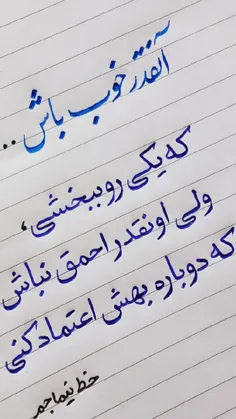 آنقدر خوب باش ..
که یکی رو ببخشی،
ولی اونقدر احمق نباش
که دوباره بهش اعتماد کنی
خط نیما جم